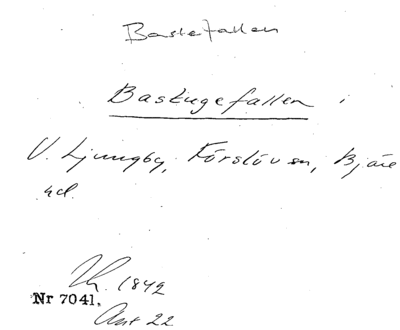 Bastefallen
Bastugefallen i
V. Ljungby, Förslöv sn, Bjäre
hd.
1842
Nr 7041.
Akt 22